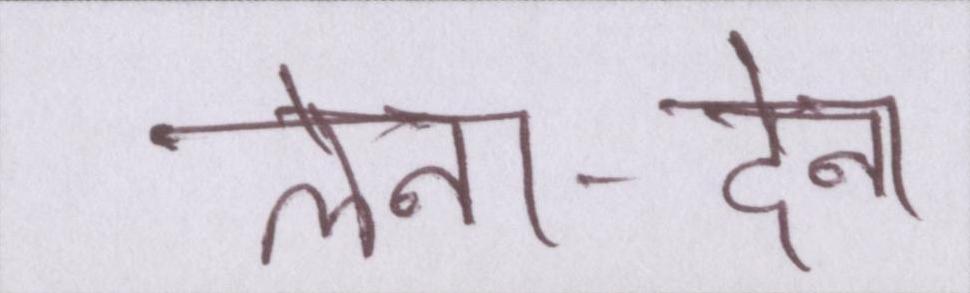 लेना-देना